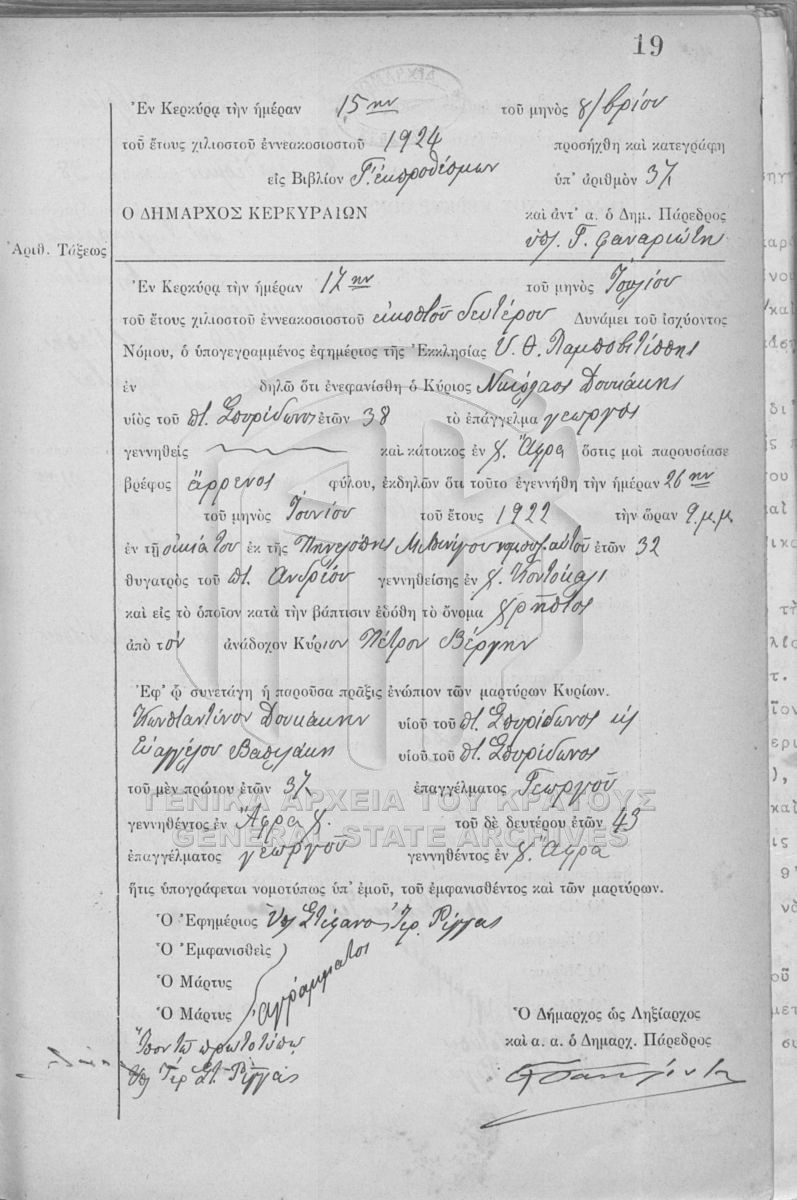 19
Ἐν Κερκύρᾳ τὴν ἡμέραν 15ην τοῦ μηνὸς 8/βρίου
τοῦ ἔτους χιλιοστοῦ ἐννεακοσιοστοῦ 1924 προσήχθη καὶ κατεγράφη
εἰς Βιβλίον Γ. ἐκπροθέσμων ὑπ' ἀριθμὸν 37
Ο ΔΗΜΑΡΧΟΣ ΚΕΡΚΥΡΑΙΩΝ καὶ ἀντ' α. ὁ Δημ. Πάρεδρος
ὑπ. Γ. Φαναριώτη
Ἀριθ. Τάξεως
Ἐν Κερκύρᾳ τὴν ἡμέραν 17ην τοῦ μηνὸς Ἰουλίου
τοῦ ἔτους χιλιοστοῦ ἐννεακοσιοστοῦ εἰκοστοῦ δευτέρου Δυνάμει τοῦ ἰσχύοντος
Νόμου, ὁ ὑπογεγραμμένος ἐφημέριος τῆς Ἐκκλησίας Υ. Θ.
ἐν δηλῶ ὅτι ἐνεφανίσθη ὁ Κύριος Νικόλαος Δουκάκης
υἱὸς τοῦ πτ. Σπυρίδωνος ἐτῶν 38 τὸ ἐπάγγελμα γεωργός
γεννηθεὶς καὶ κάτοικος ἐν χ. Ἄφρα ὅστις μοὶ παρουσίασε
βρέφος ἄρρενος φύλου, ἐκδηλῶν ὅτι τοῦτο ἐγεννήθη τὴν ἡμέραν 26ην
τοῦ μηνὸς Ἰουνίου τοῦ ἔτους 1922 τὴν ὥραν 9 μ.μ
ἐν τῇ οἰκίᾳ του ἐκ τῆς Πηνελόπης νομ. συζ. αὐτοῦ ἐτῶν 32
θυγατρὸς τοῦ πτ. Ἀνδρέου γεννηθείσης ἐν χ. Κοντόκαλι
καὶ εἰς τὸ ὁποῖον κατὰ τὴν βάπτισιν ἐδόθη τὸ ὄνομα Χρῆστος
ἀπὸ τὸν ἀνάδοχον Κύριον Πέτρον Βέργην
Ἐφ' ᾧ συνετάγη ἡ παροῦσα πρᾶξις ἐνώπιον τῶν μαρτύρων Κυρίων.
Κωνσταντίνον Δουκάκην υἱοῦ τοῦ πτ. Σπυρίδωνος κ
Εὐαγγέλου Βασιλάκη υἱοῦ τοῦ πτ. Σπυρίδωνος
τοῦ μὲν πρώτου ἐτῶν 37 ἐπαγγέλματος Γεωργοῦ
γεννηθέντος ἐν Ἄφρα χ. τοῦ δὲ δευτέρου ἐτῶν 43
ἐπαγγέλματος γεωργοῦ γεννηθέντος ἐν χ. Ἄφρα
ἥτις ὑπογράφεται νομοτύπως ὑπ' ἐμοῦ, τοῦ ἐμφανισθέντος καὶ τῶν μαρτύρων.
Ὁ Ἐφημέριος Ὑπ Στέφανος Ἱερ. Ρίγγας
Ὁ Ἐμφανισθεὶς
Ὁ Μάρτυς ἀγράμματοι
Ὁ Μάρτυς Ὁ Δήμαρχος ὡς Ληξίαρχος
Ἴσον τῷ πρωτοτύπῳ καὶ α. α. ὁ Δημαρχ. Πάρεδρος
Ὑπ Ἱερ Στ. Ρίγγας
ΓΕΝΙΚΑ ΑΡΧΕΙΑ ΤΟΥ ΚΡΑΤΟΥΣ
GENERAL STATE ARCHIVES